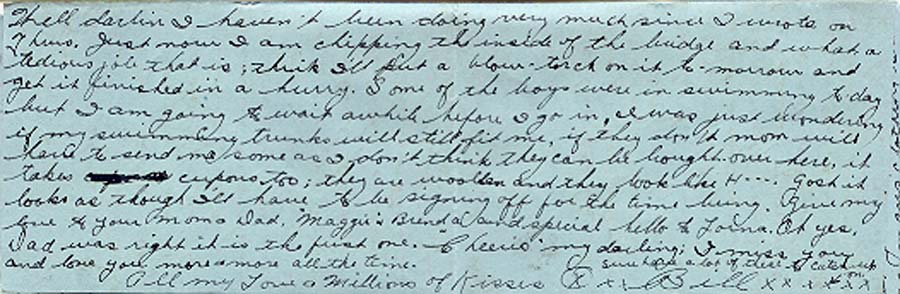 Well darlin I haven't been doing very much since I wrote on
Thurs. Just now I am chipping the inside of the bridge and what a
tedious job that is; think I'll put a blow-torch on it to-morrow and
get it finished in a hurry. Some of the boys were in swimming to day
but I am going to wait awhile before I go in, I was just wondering
if my swimming trunks will still fit me, if they don't mom will
have to send me some as I don't think they can be bought over here, it
takes cupons too; they are woollen and they look like H---. Gosh it
looks as though I'll have to be signing off for the time being. Give my
love to your Mom & Dad, Maggie & Brenda and special hello to Lorna. Oh yes,
Dad was right it is the first one. "Cheerio" my darling; I miss you
and love you more & more all the time.
sure have a lot of these to catch up on.
All my Love & Millions of Kisses Bill xx